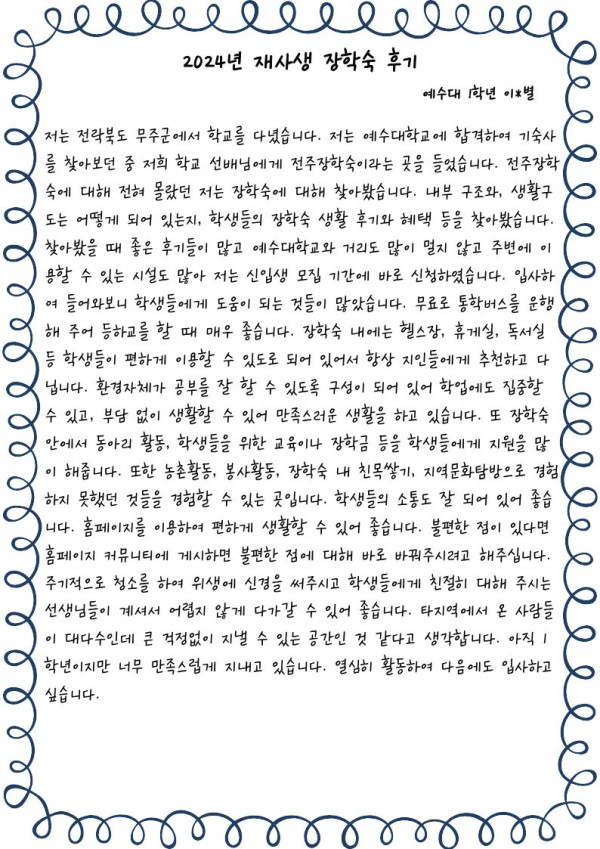 2024년 재사생 장학숙 후기
예수대 1학년 이*별
저는 전락북도 무주군에서 학교를 다녔습니다. 저는 예수대학교에 합격하여 기숙사
를 찾아보던 중 저희 학교 선배님에게 전주장학숙이라는 곳을 들었습니다. 전주장학
숙에 대해 전혀 몰랐던 저는 장학숙에 대해 찾아봤습니다. 내부 구조와, 생활구
도는 어떻게 되어 있는지, 학생들의 장학숙 생활 후기와 혜택 등을 찾아봤습니다.
찾아봤을 때 좋은 후기들이 많고 예수대학교와 거리도 많이 멀지 않고 주변에 이
용할 수 있는 시설도 많아 저는 신입생 모집 기간에 바로 신청하였습니다. 입사하
여 들어와보니 학생들에게 도움이 되는 것들이 많았습니다. 무료로 통학버스를 운행
해 주어 등하교를 할 때 매우 좋습니다. 장학숙 내에는 헬스장, 휴게실, 독서실
등 학생들이 편하게 이용할 수 있도로 되어 있어서 항상 지인들에게 추천하고 다
닙니다. 환경자체가 공부를 잘 할 수 있도록 구성이 되어 있어 학업에도 집중할
수 있고, 부담 없이 생활할 수 있어 만족스러운 생활을 하고 있습니다. 또 장학숙
안에서 동아리 활동, 학생들을 위한 교육이나 장학금 등을 학생들에게 지원을 많
이 해줍니다. 또한 농촌활동, 봉사활동, 장학숙 내 친목쌓기, 지역문화탐방으로 경험
하지 못했던 것들을 경험할 수 있는 곳입니다. 학생들의 소통도 잘 되어 있어 좋습
니다. 홈페이지를 이용하여 편하게 생활할 수 있어 좋습니다. 불편한 점이 있다면
홈페이지 커뮤니티에 게시하면 불편한 점에 대해 바로 바꿔주시려고 해주십니다.
주기적으로 청소를 하여 위생에 신경을 써주시고 학생들에게 친절히 대해 주시는
선생님들이 계셔서 어렵지 않게 다가갈 수 있어 좋습니다. 타지역에서 온 사람들
이 대다수인데 큰 걱정없이 지낼 수 있는 공간인 것 같다고 생각합니다. 아직 1
학년이지만 너무 만족스럽게 지내고 있습니다. 열심히 활동하여 다음에도 입사하고
싶습니다.